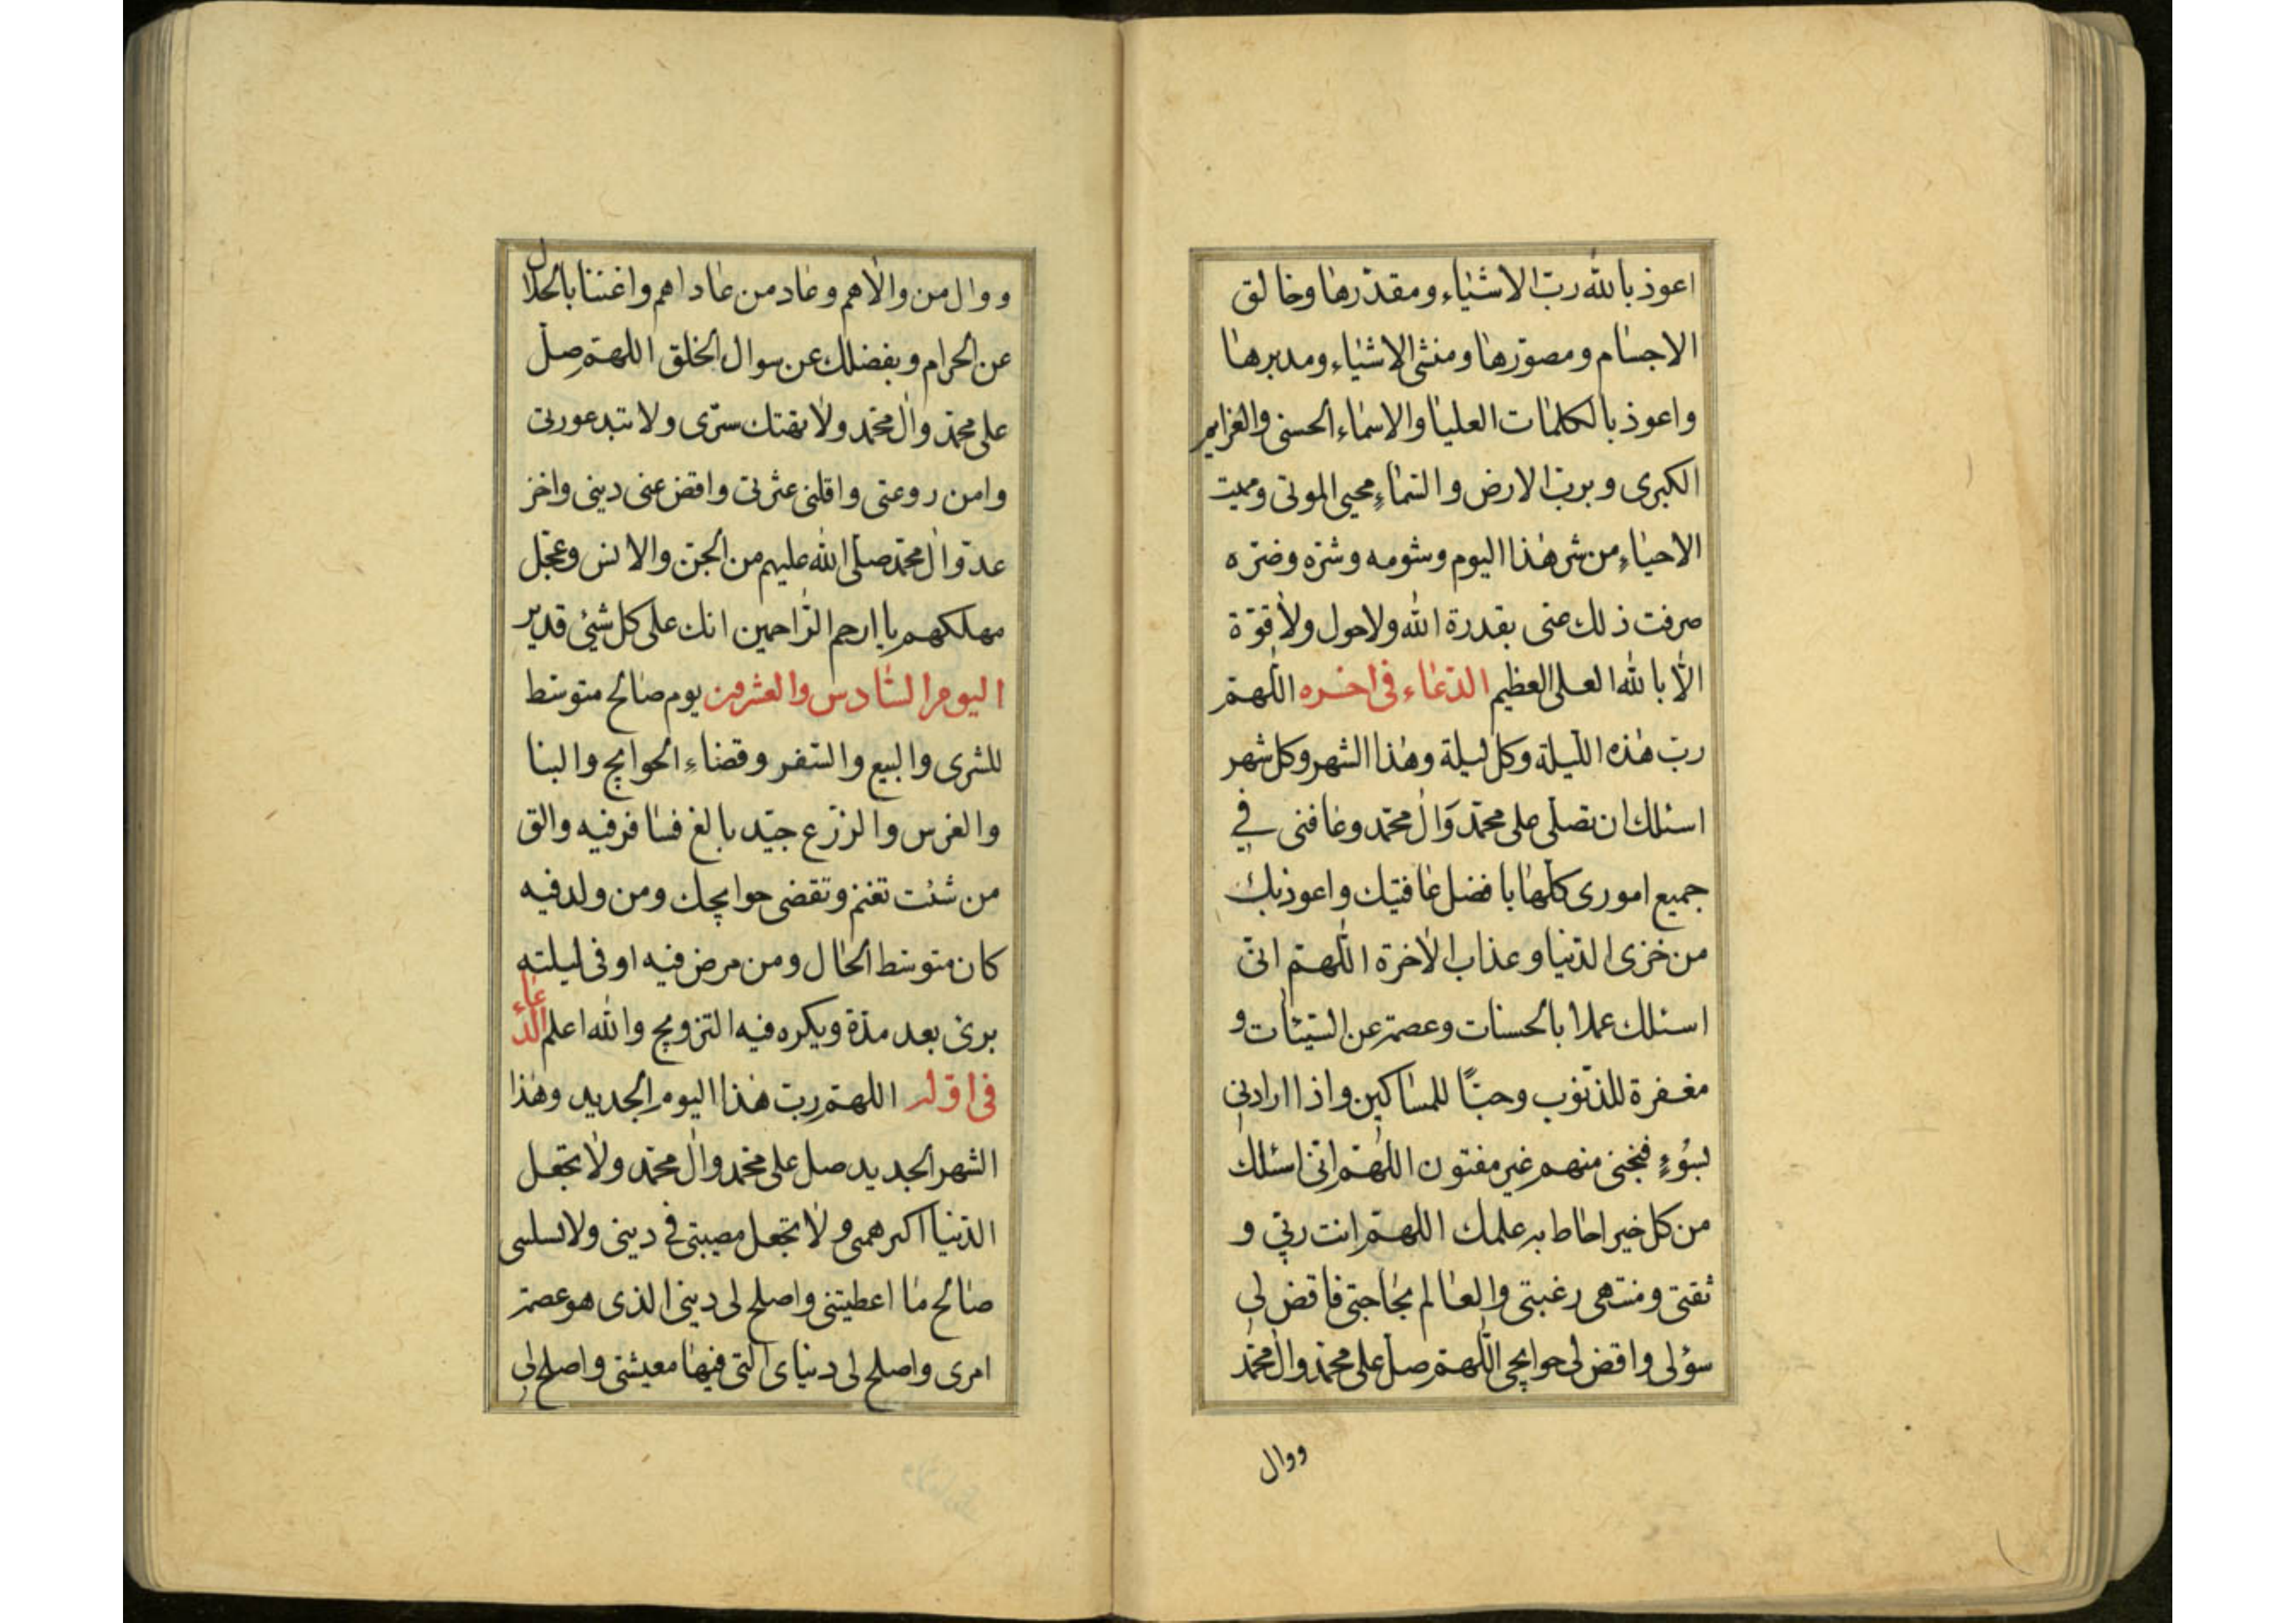 اعوذ بالله رب الاشیاء ومقدرها وخالق
الاجسام ومصورها ومنشئ الاشیاء ومدبرها
واعوذ بالکلمات العلیا والاسماء الحسنی والعزایم
الکبری وبرب الارض والسماء محیی الموتی وممیت
الاحیاء من شر هذا الیوم وشومه وشره وضره
صرفت ذلك عنی بقدرة الله ولاحول ولا قوة
الا بالله العلی العظیم الدعاء فی اخره اللهم
رب هذه اللیلة وکل لیلة وهذا الشهر وکل شهر
اسئلك ان تصلی علی محمد وال محمد وعافنی فی
جمیع اموری کلها بافضل عافیتك واعوذ بك
من خزی الدنیا وعذاب الاخرة اللهم انی
اسئلك عملا بالحسنات وعصمة عن السیئات و
مغفرة للذنوب وحبًا للمساکین واذا ارادنی
بسُوءٍ فنجنی منهم غیر مفتون اللهم انی اسئلك
من کل خیر احاط به علمك اللهم انت ربی و
ثقتی ومنتهی رغبتی والعالم بحاجتی فاقض لی
سؤلی واقض لی حوایجی اللهم صل علی محمد وال محمد
ووال
ووال من والاهم وعاد من عاداهم واغننا بالحلال
عن الحرام وبفضلك عن سوال الخلق اللهم صل
علی محمد وال محمد ولا تهتك ستری ولا تبد عورتی
وامن روعتی واقلنی عثرتی واقض عنی دینی واخز
عدو ال محمد صلی الله علیهم من الجن والانس وعجل
مهلکهم یا ارحم الراحمین انك علی کل شئ قدیر
الیوم السادس والعشرون یوم صالح متوسط
للشری والبیع والسفر وقضاء الحوایج والبنا
والغرس والزرع جید بالغ فسافر فیه والق
من شئت تغنم وتقضی حوایجك ومن ولد فیه
کان متوسط الحال ومن مرض فیه او فی لیلته
برئ بعد مدة ویکره فیه التزویج والله اعلم الدعاء
فی اوله اللهم رب هذا الیوم الجدید وهذا
الشهر الجدید صل علی محمد وال محمد ولا تجعل
الدنیا اکبر همی ولا تجعل مصیبتی فی دینی ولا تسلبنی
صالح ما اعطیتنی واصلح لی دینی الذی هو عصمة
امری واصلح لی دنیای التی فیها معیشتی واصلح لی